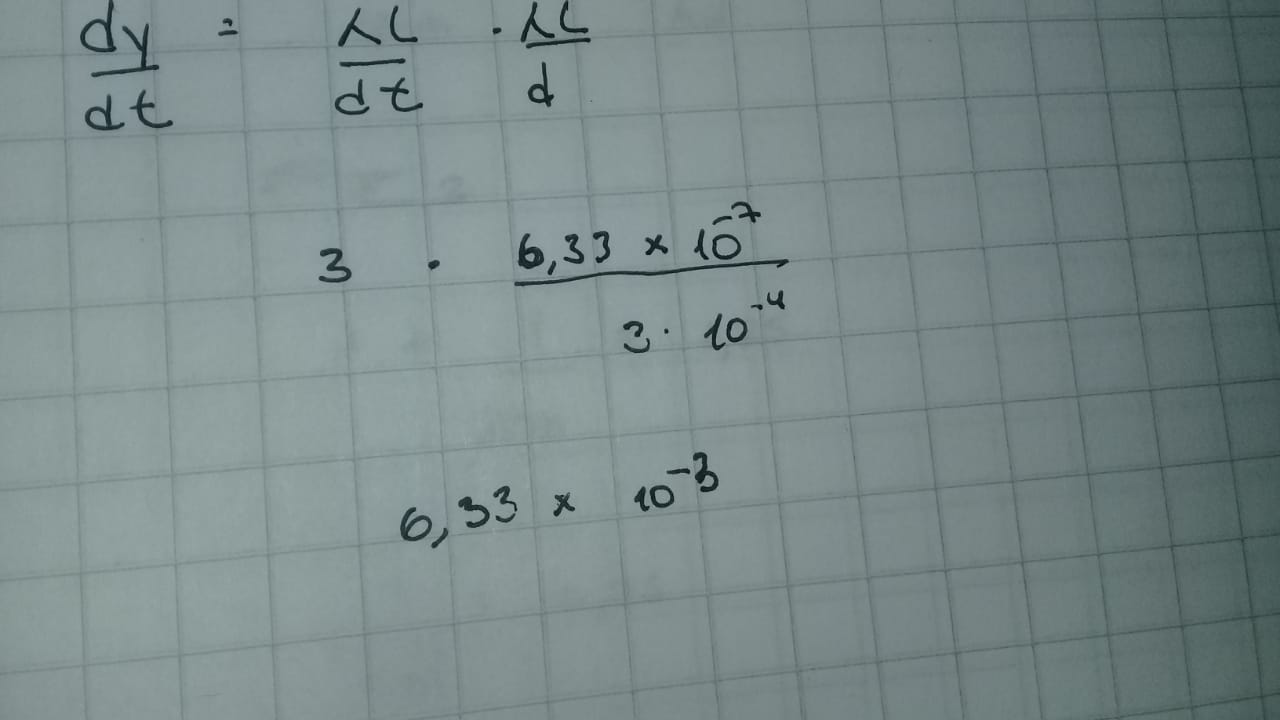 dy/dt = λL/dt · λL/d
3 · 6,33 × 10⁻⁷ / 3 · 10⁻⁴
6,33 × 10⁻³